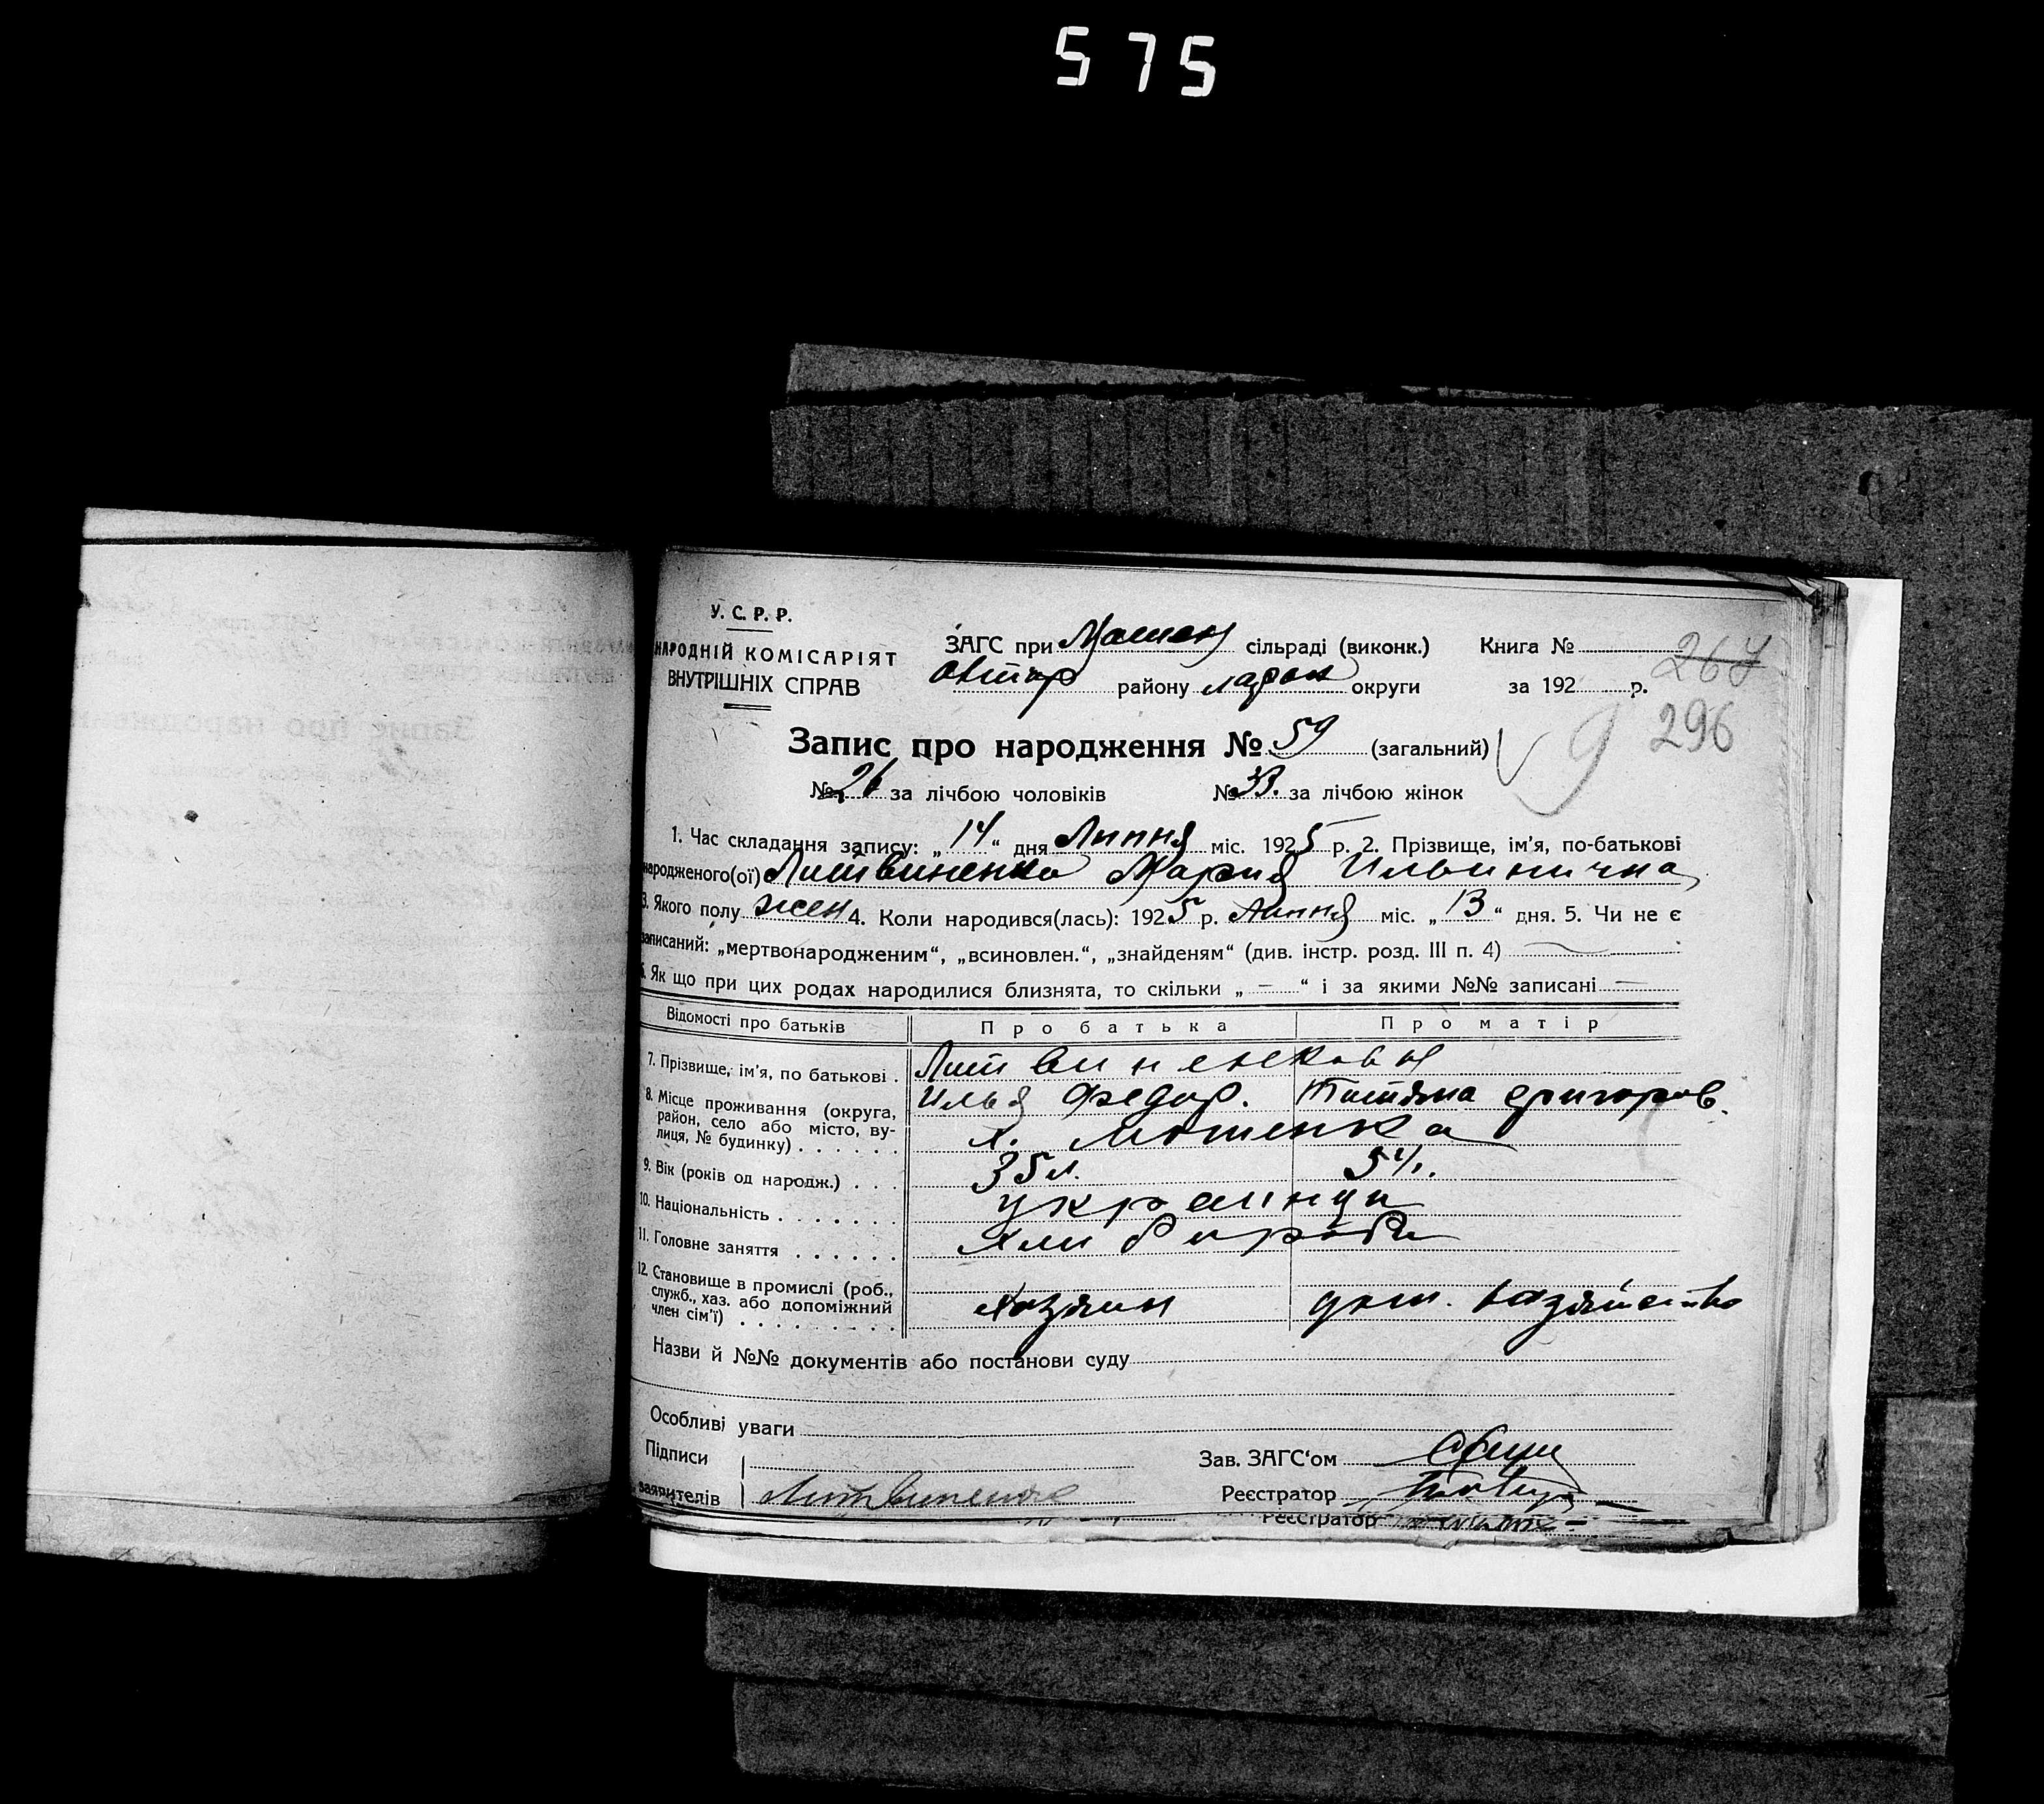 575
У. С. Р. Р.
НАРОДНІЙ КОМІСАРІЯТ
ВНУТРІШНІХ СПРАВ
ЗАГС при Мошен сільраді (виконк.) Книга №
району округи за 192 р.
267
296
9
Запис про народження № 59 (загальний)
№ 26 за лічбою чоловіків № 33. за лічбою жінок
1. Час складання запису: „14“ дня Липня міс. 1925 р. 2. Прізвище, ім'я, по-батькові
народженого(ої) Литвиненко Мария Ильинична
3. Якого полу жен 4. Коли народився(лась): 1925 р. Липня міс. „13“ дня. 5. Чи не є
записаний: „мертвонародженим“, „всиновлен.“, „знайденям“ (див. інстр. розд. III п. 4)
6. Як що при цих родах народилися близнята, то скільки „ — “ і за якими №№ записані —
Відомості про батьків Про батька Про матір
7. Прізвище, ім'я, по батькові . Литвиненковы
Илья Федор. Татяна Григоров.
8. Місце проживання (округа,
район, село або місто, ву-
лиця, № будинку) . . . . . . х. Мошенка
9. Вік (років од народж.) . . . 35 л.
10. Національність . . . . . . . украинци
11. Головне заняття . . . . . . Хлибороби
12. Становище в промислі (роб.,
служб., хаз. або допоміжний
член сім'ї) . . . . . . . . . Хазяин дом. хазяйство
Назви й №№ документів або постанови суду
Особливі уваги
Підписи
заявителів Литвиненко
Зав. ЗАГС'ом
Реєстратор
Реєстратор